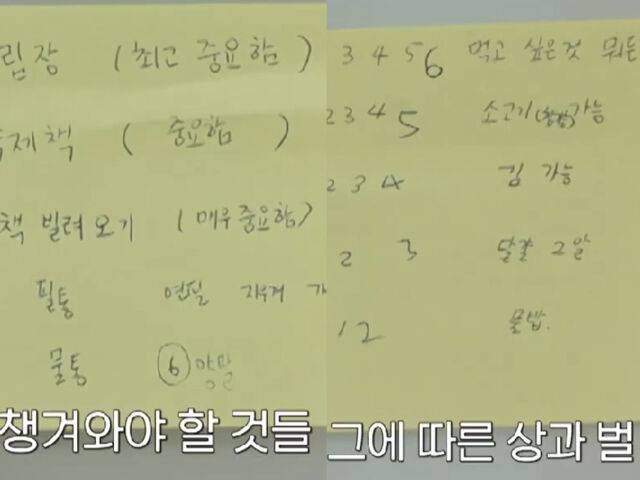 립장 (최고 중요함)
제책 ( 중요함 )
책 빌려오기 (매우중요함)
필통 연필 지우개
물통 ⑥ 양말
챙겨와야 할 것들
3 4 5 6 먹고 싶은것 뭐든
2 3 4 5 소고기 가능
2 3 4 김 가능
2 3 달걀 2알
1 2 물밥.
그에 따른 상과 벌